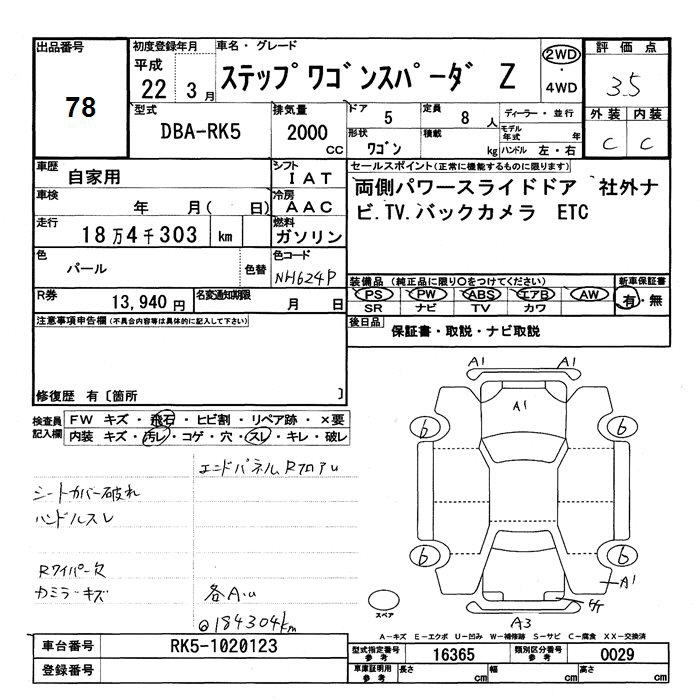 出品番号
78
初度登録年月
平成
22年 3月
車名・グレード
ステップワゴンスパーダ Z
2WD
・
4WD
評価点
3.5
外装 内装
C C
型式
DBA-RK5
排気量
2000 cc
ドア
5
定員
8 人
ディーラー・並行
形状
ワゴン
積載
kg
モデル年式 年
ハンドル 左・右
車歴
自家用
シフト
IAT
車検
年 月( 日)
冷房
AAC
走行
18万4千303 km
燃料
ガソリン
色
パール
色替
色コード
NH624P
R券
13,940円
名変通知期限
月 日
セールスポイント(正常に機能するものに限ります)
両側パワースライドドア 社外ナ
ビ.TV.バックカメラ ETC
装備品(純正品に限り○をつけてください)
PS PW ABS エアB AW
SR ナビ TV カワ
新車保証書
有・無
後日品
保証書・取説・ナビ取説
注意事項申告欄(不具合内容等は具体的に記入して下さい)
修復歴 有〔箇所 〕
検査員
記入欄
FW キズ・飛石・ヒビ割・リペア跡・×要
内装 キズ・汚レ・コゲ・穴・スレ・キレ・破レ
エンドパネルRフロアu
シートカバー破れ
ハンドルスレ
Rワイパー欠
カミラーキズ
各A・u
@184304km
A1 A1
A1
b b
b b
A1
A3
スペア
A-キズ E-エクボ U-凹み W-補修跡 S-サビ C-腐食 XX-交換済
車台番号
RK5-1020123
登録番号
型式指定番号
参考
16365
類別区分番号
参考
0029
車庫証明用
参考
長さ cm
幅 cm
高さ cm